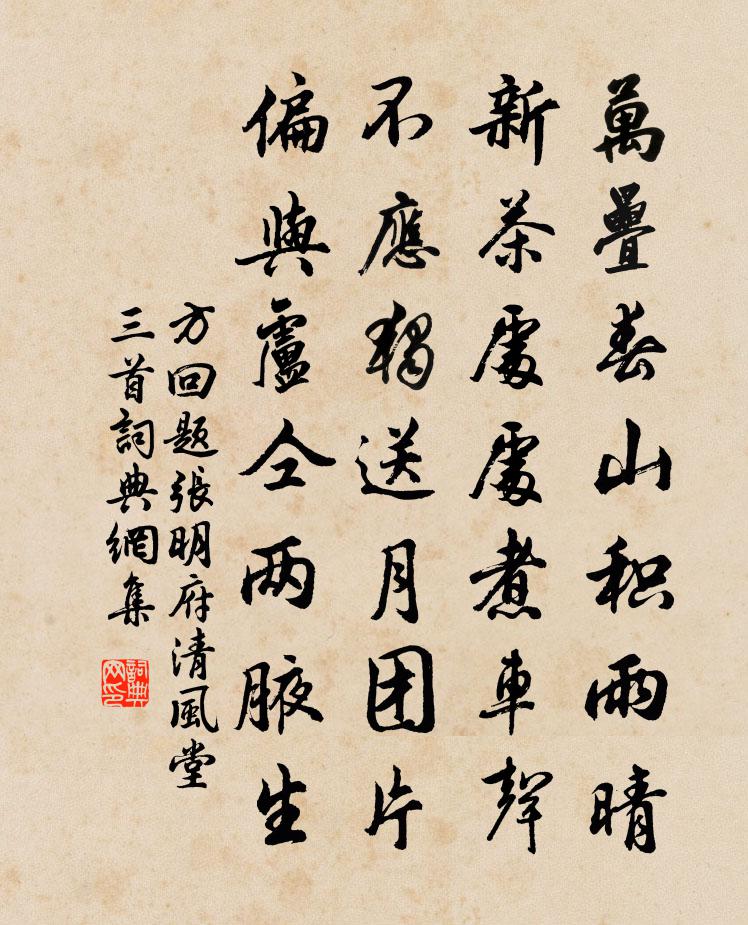 萬疊春山积雨晴
新茶處處煮車聲
不應獨送月团片
偏與盧仝两腋生
方回题張明府清風堂
三首詞典網集
詞典网印